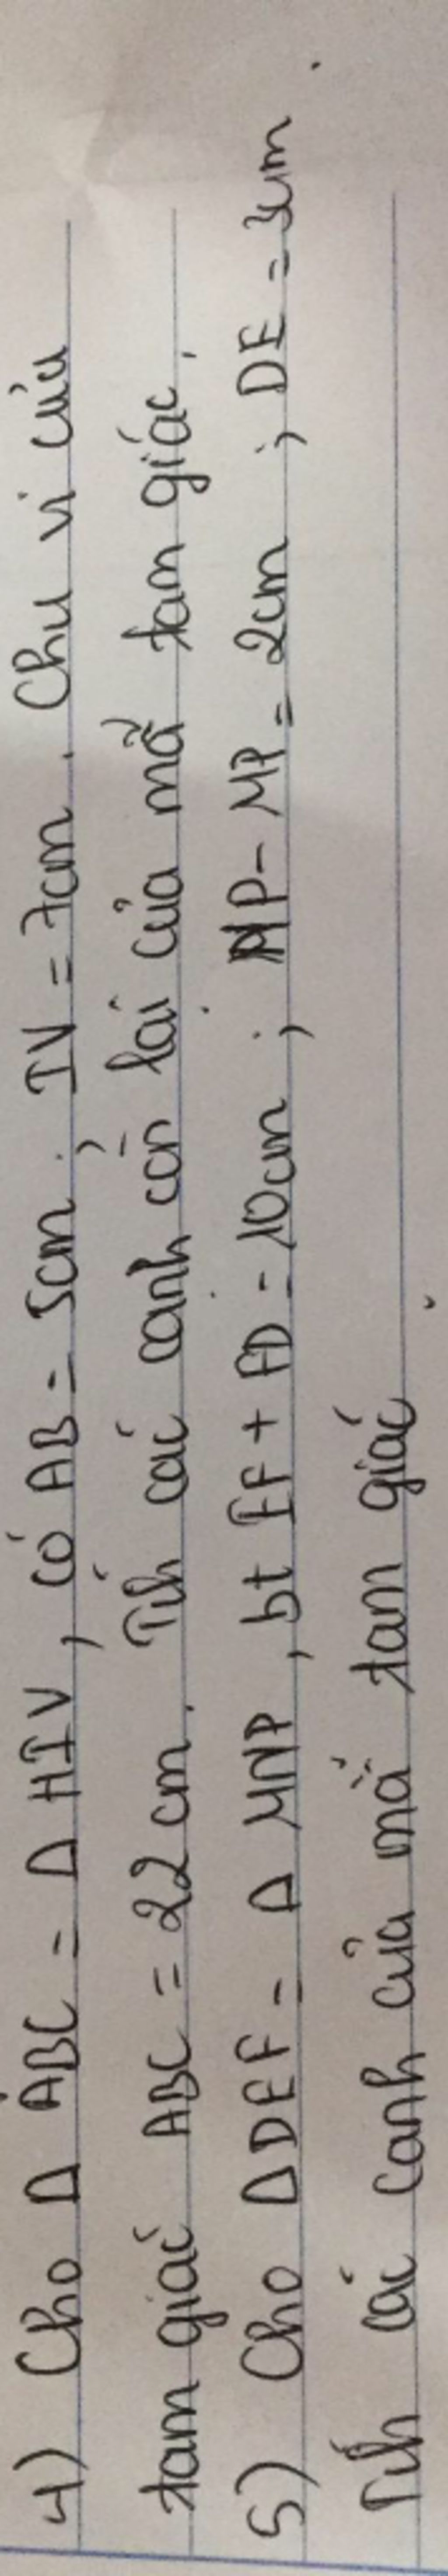 4) Cho Δ ABC = Δ HIV, có AB = 5cm; IV = 7cm. Chu vi của
tam giác ABC = 22 cm. Tíh các cạnh còn lại của mỗ tam giác.
5) Cho ΔDEF = Δ MNP, bt EF + FD = 10cm; NP - MP = 2cm; DE = 3cm.
Tíh các cạnh của mỗ tam giác